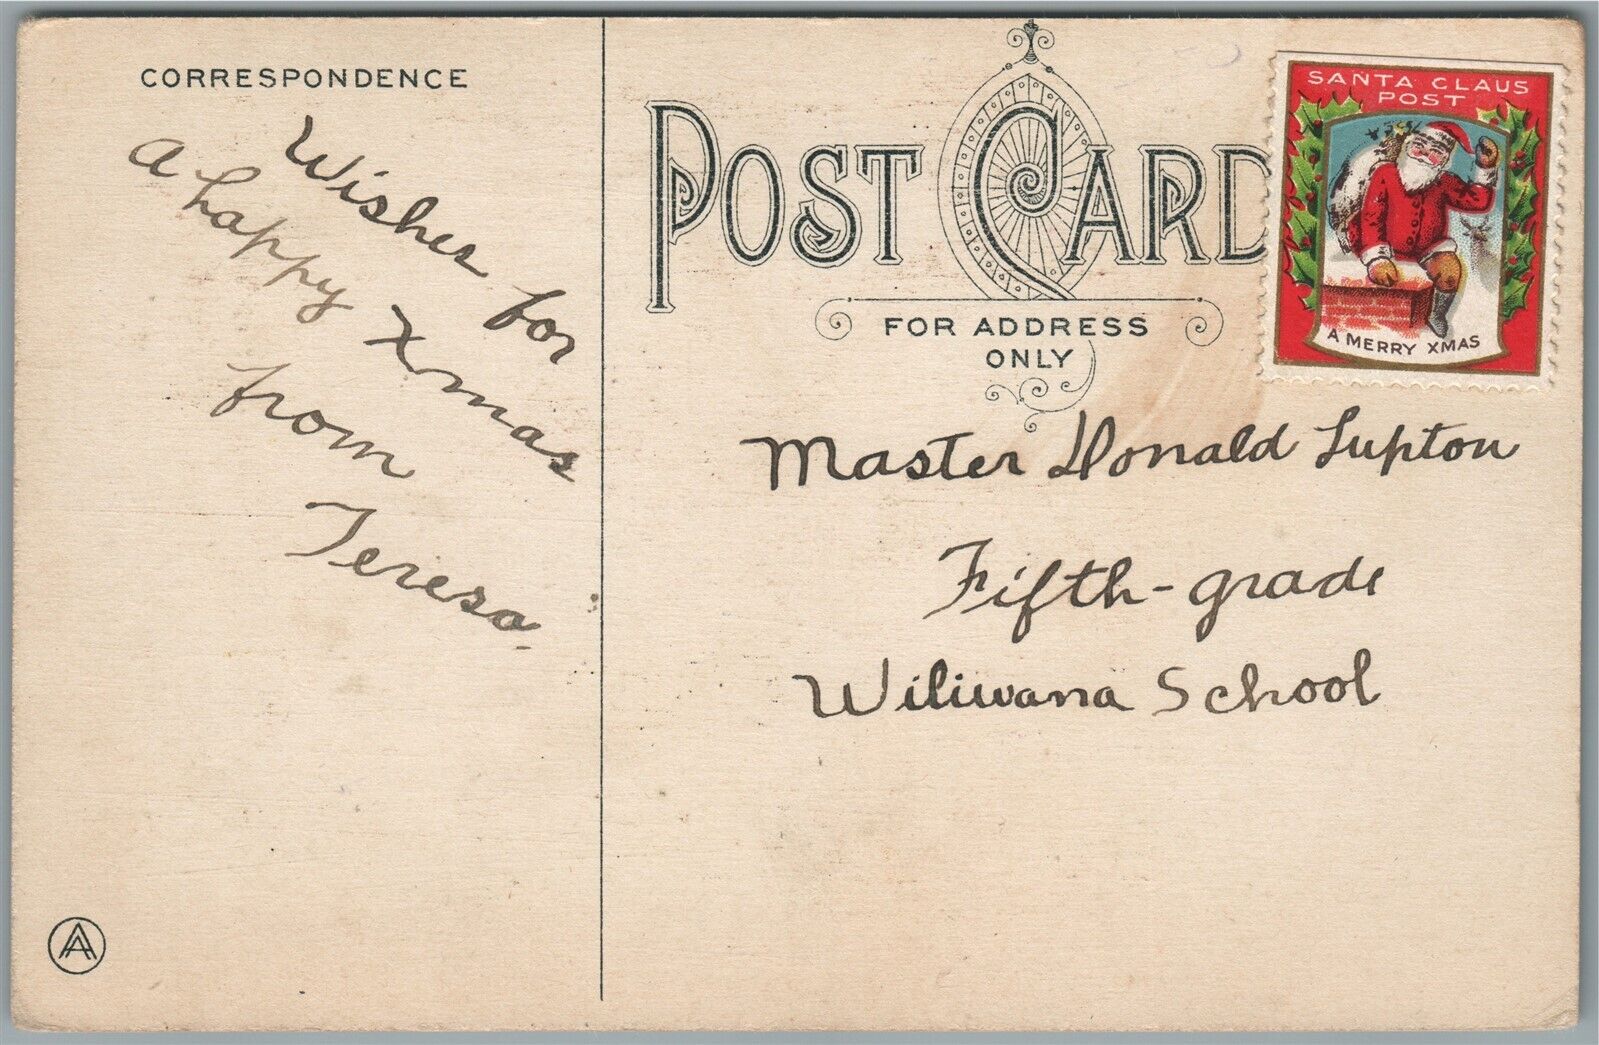 CORRESPONDENCE
Wishes for
a happy Xmas
from
Teresa.
POST CARD
FOR ADDRESS
ONLY
SANTA CLAUS
POST
A MERRY XMAS
Master Donald Lupton
Fifth-grade
Wiliwana School
AA